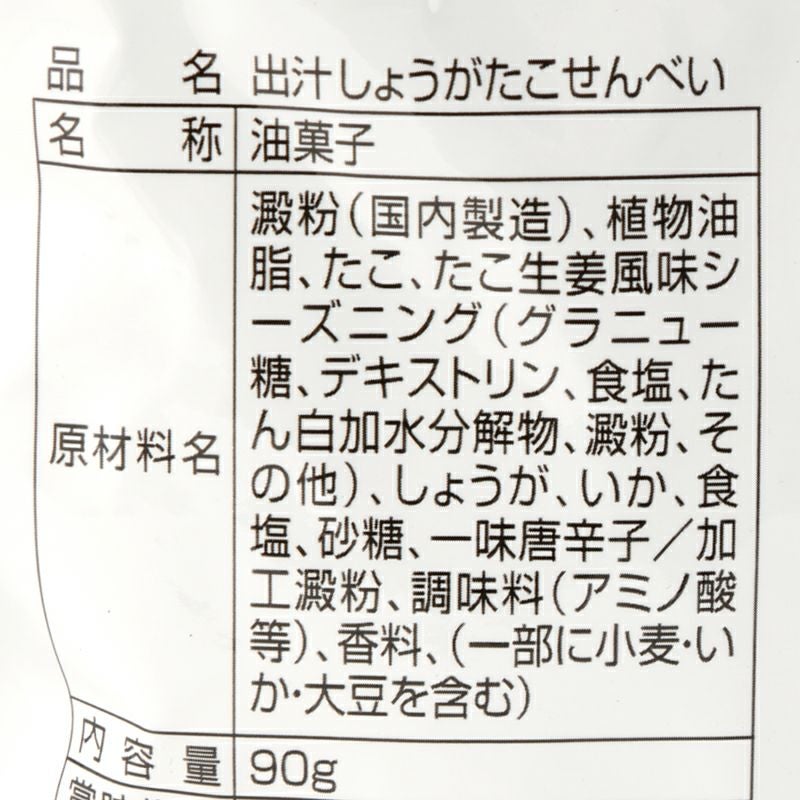 品名 出汁しょうがたこせんべい
名称 油菓子
澱粉(国内製造)、植物油
脂、たこ、たこ生姜風味シ
ーズニング(グラニュー
糖、デキストリン、食塩、た
原材料名 ん白加水分解物、澱粉、そ
の他)、しょうが、いか、食
塩、砂糖、一味唐辛子/加
工澱粉、調味料(アミノ酸
等)、香料、(一部に小麦・い
か・大豆を含む)
内容量 90g